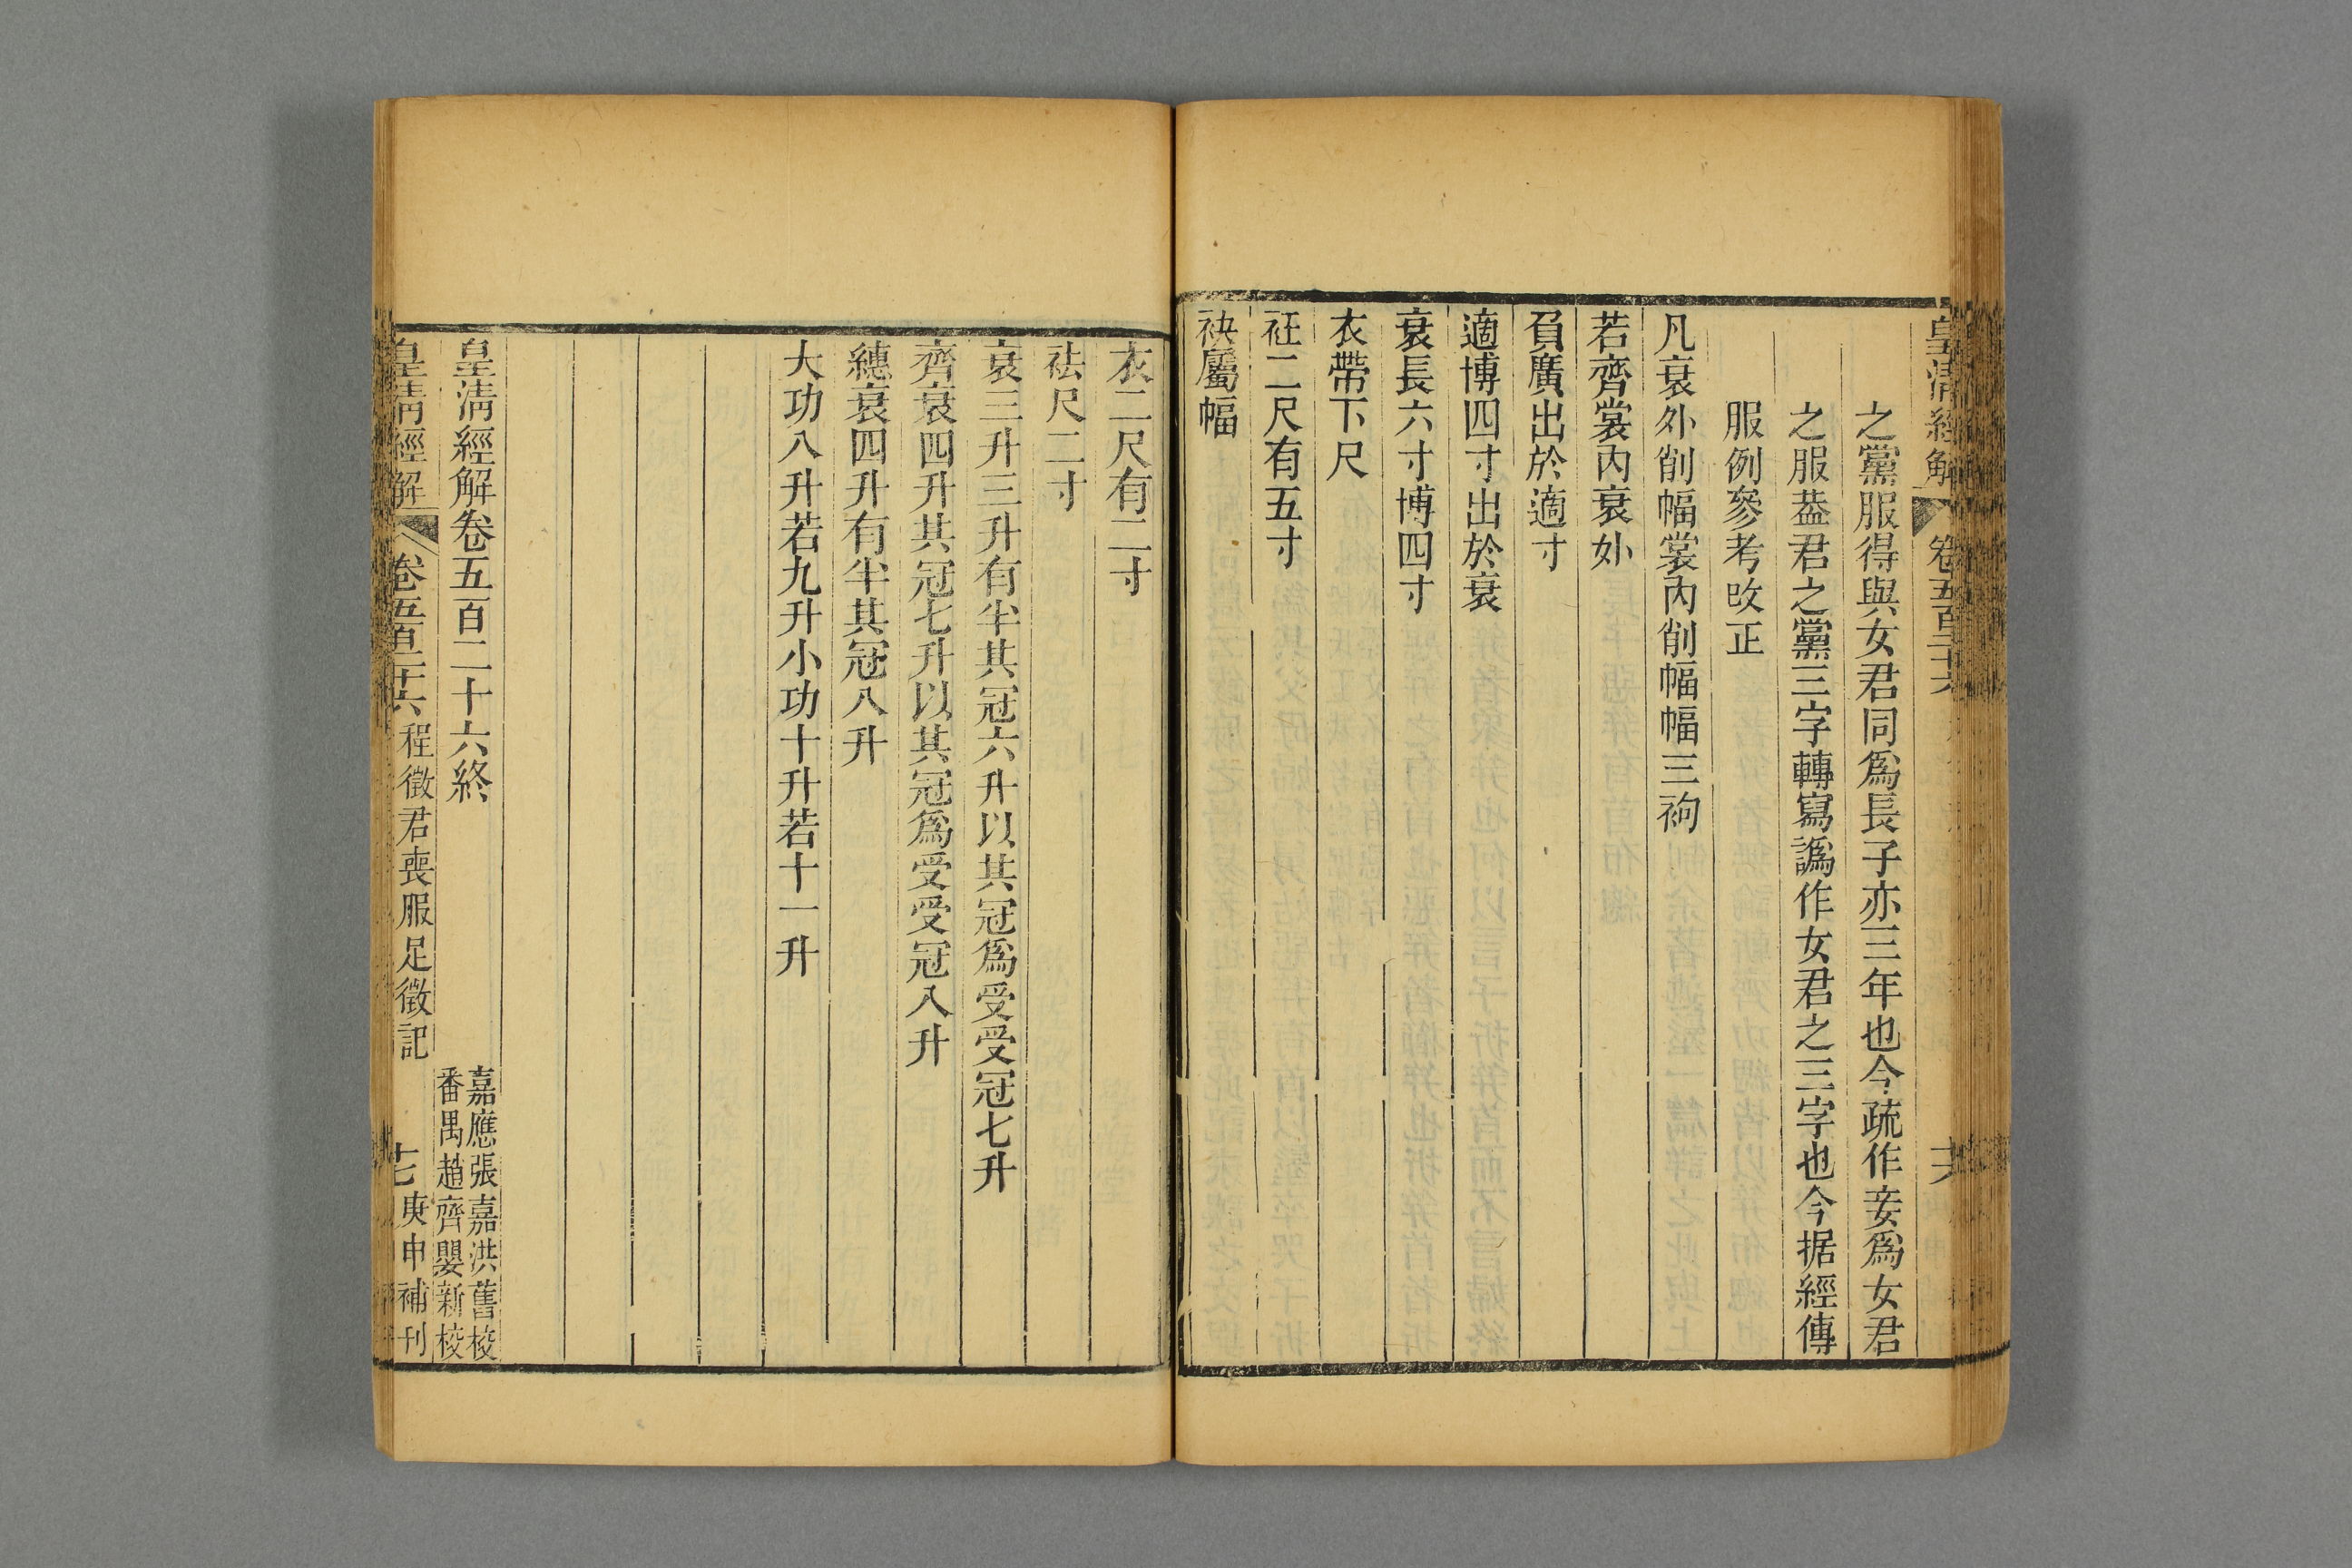 皇清經解 卷五百二十六
之黨服得與女君同爲長子亦三年也今疏作妾爲女君
之服葢君之黨三字轉寫譌作女君之三字也今据經傳
服例參考改正
凡衰外削幅裳內削幅幅三袧
若齊裳內衰外
負廣出於適寸
適博四寸出於衰
衰長六寸博四寸
衣帶下尺
衽二尺有五寸
袂屬幅
衣二尺有二寸
袪尺二寸
衰三升三升有半其冠六升以其冠爲受受冠七升
齊衰四升其冠七升以其冠爲受受冠八升
繐衰四升有半其冠八升
大功八升若九升小功十升若十一升
皇清經解卷五百二十六終
嘉應張嘉洪舊校
番禺趙齊嬰新校
皇清經解 卷五百二十六 程徵君喪服足徵記 十七 庚申補刊